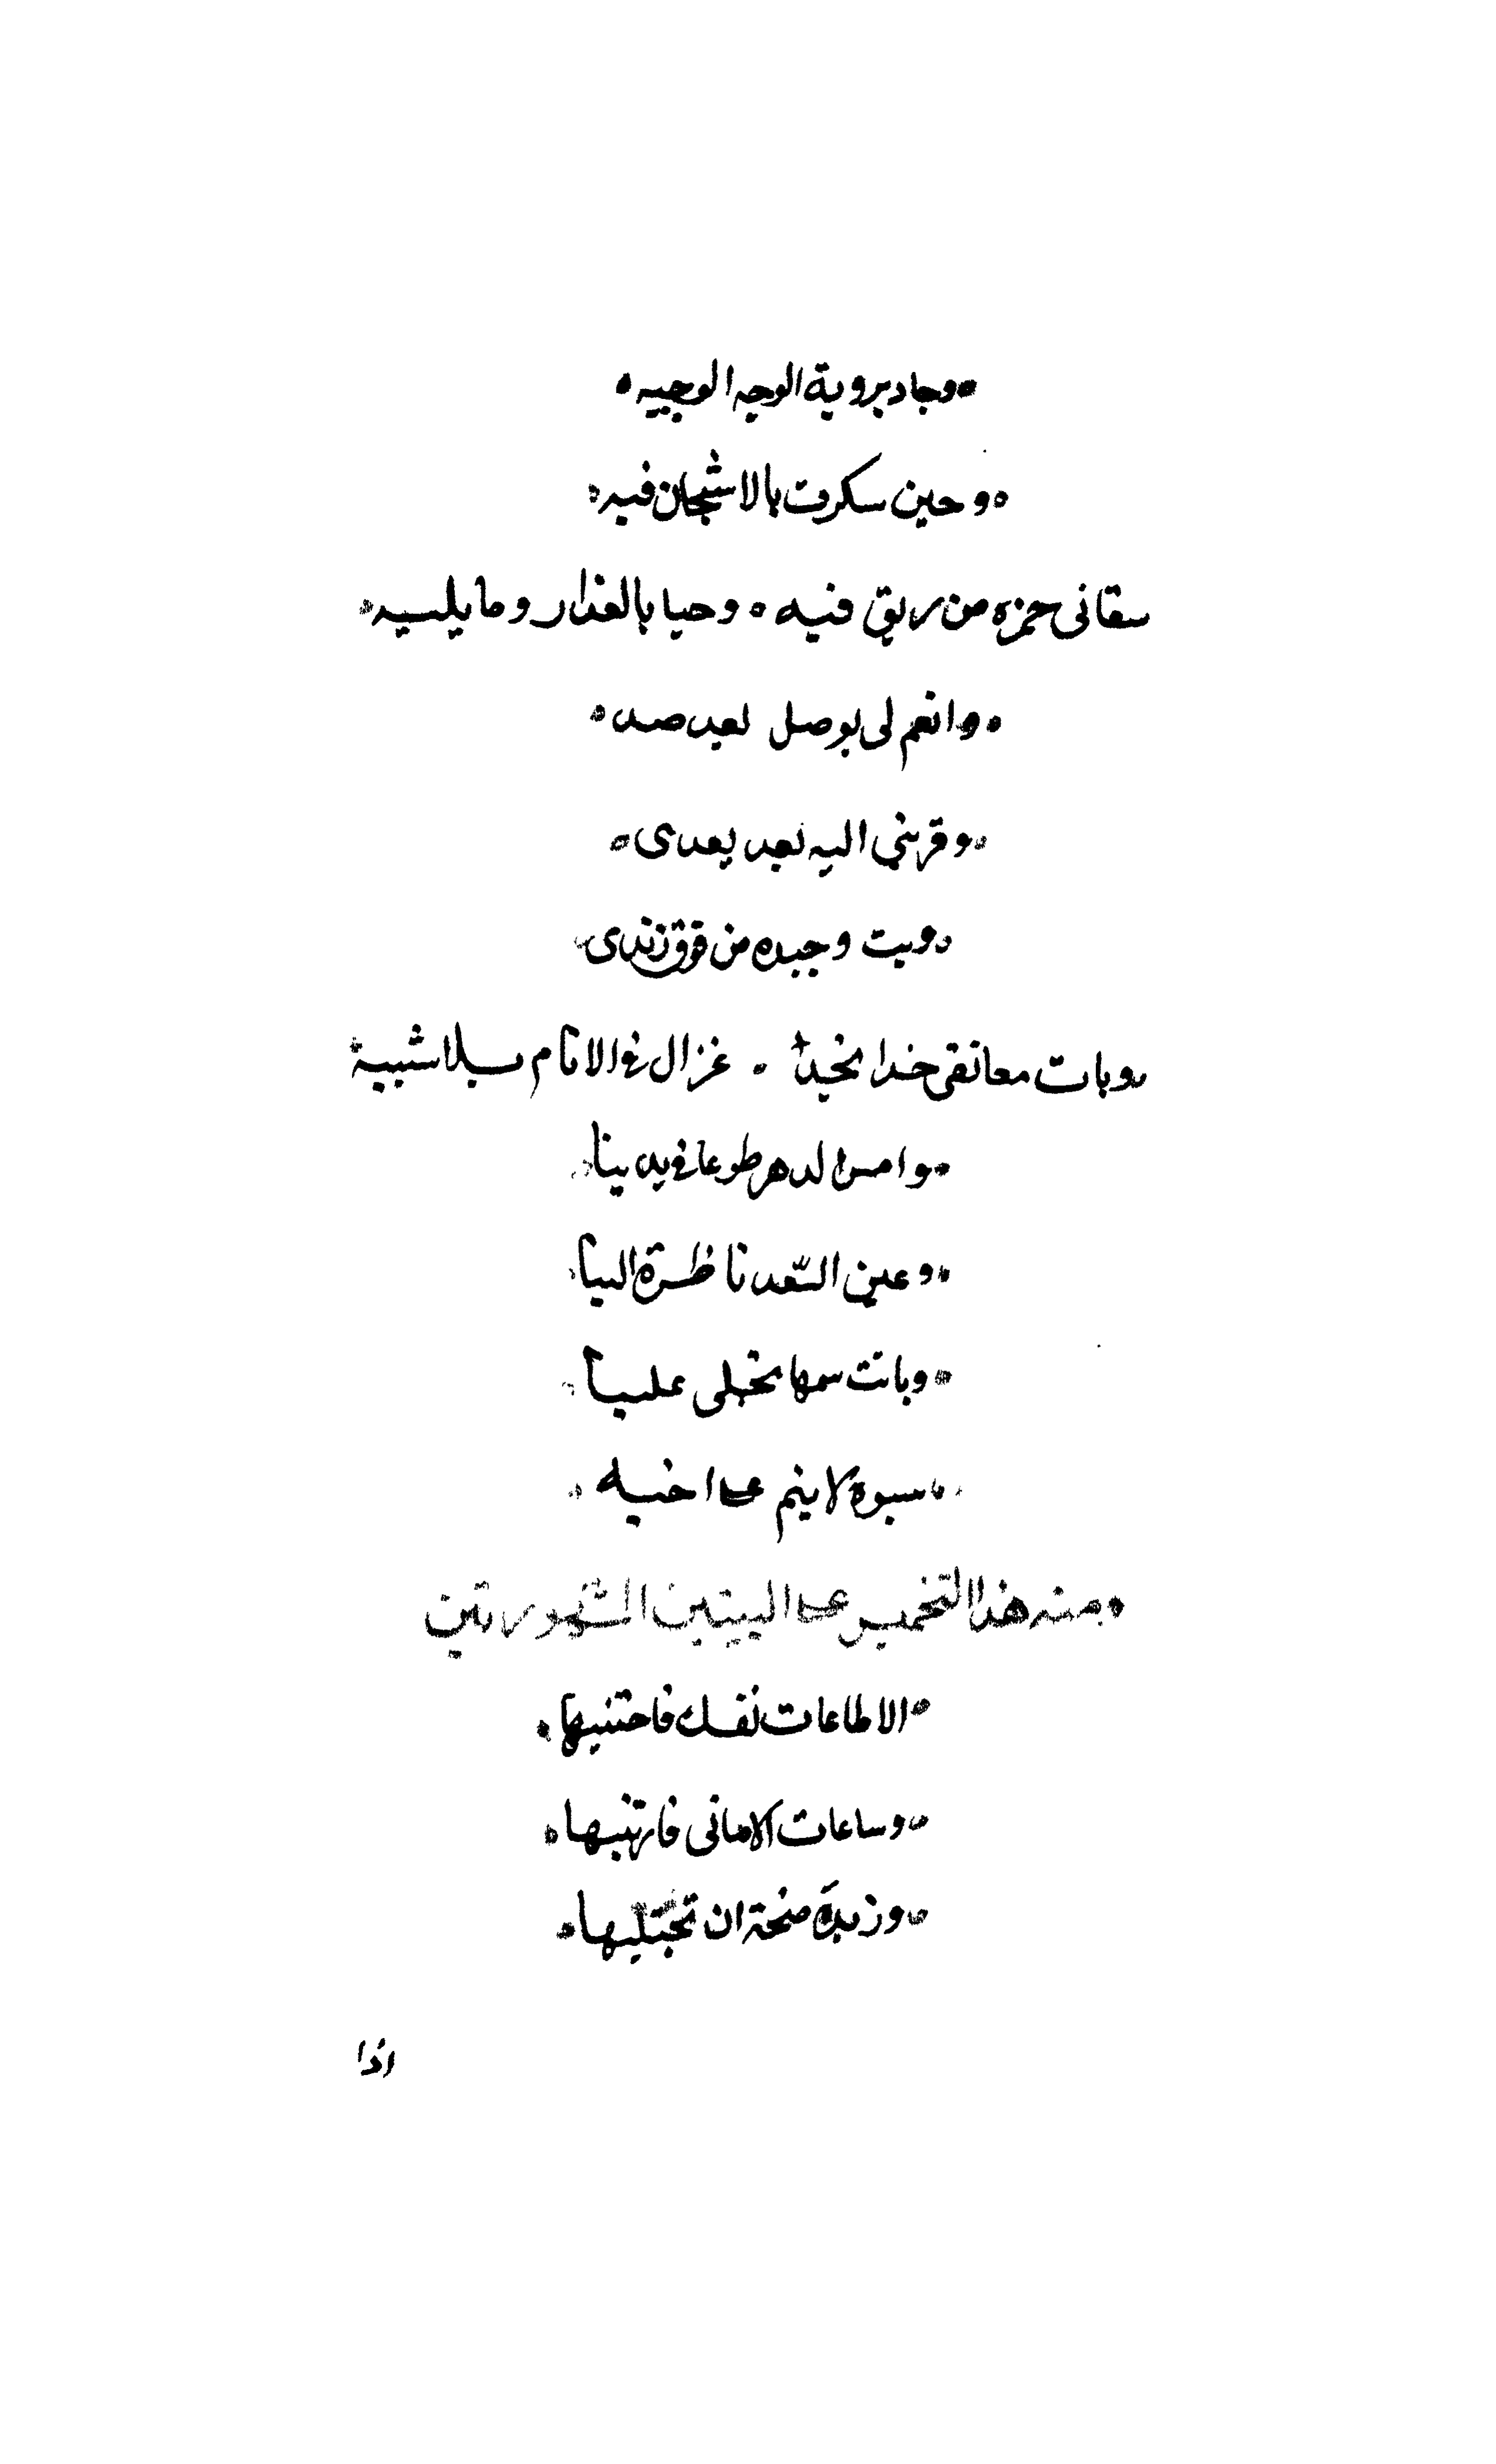 وجاد بروية الوجه الوجيه
وحين سكرت بالاشجان فيه
سقانى خمزه من ريق فيه وحيا بالعذار وما يليه
وانعم لى بوصل بعد صد
وقربنى اليه بعد بعدى
وبت وجيده من فوق زندى
وبات معانقى خدا بخد غزال فى الانام بلا شبيه
وامسى الدهر طوعا فى يدينا
وعين السعد ناظرة الينا
وباتت تجلى علينا
لا ينم على اخيه
منه هذا التخميس على البيتين المشهورتين
الا طاعات نفسك فاجتنيها
وساعات الامانى فارتهنيها
وزبدة منحة ان تجتليها
اذا